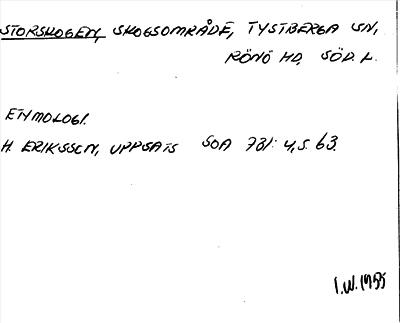 STORSKOGEN, SKOGSOMRÅDE, TYSTBERGA SN,
RÖNÖ HD, SÖD. L.
ETYMOLOGI.
H. ERIKSSON, UPPSATS SOA 731: 4, S. 63.
I.W. 1955